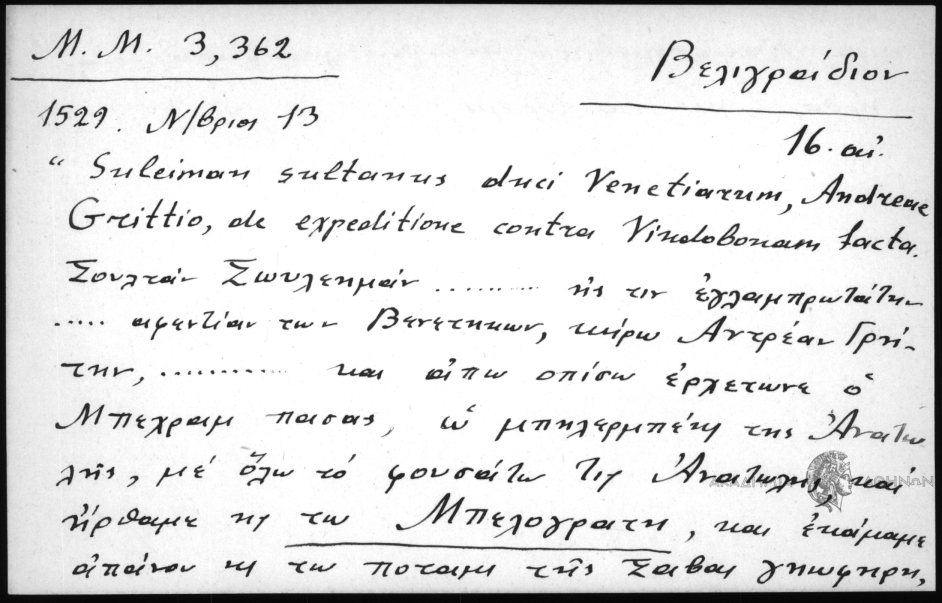 M. M. 3, 362
Βελιγραίδιον
1529. Ν/βριος 13
16. αἰ.
“ Suleiman sultanus duci Venetiarum, Andreae
Grittio, de expeditione contra Vindobonam facta.
Σουλτάν Σωυλεημάν .......... ης τιν ἐγλαμπρωτάτην
..... αφεντίαν των Βενετηκων, κύρω Αντρέαν Γρή-
την, ............ και ἀπω οπίσω ἐρχετωνε ὁ
Μπεχραμ πασας, ὡ μπηλερμπέης της Ἀνατω
λῆς, μέ ὅλω τό φουσάτω τις Ἀνατωλης, καί
ἤρθαμε ης τω Μπελογρατη, και ἐκάμαμε
ἀπάνου ης τω ποταμι τῆς Σαβας γηωφηρη,
ΑΚΑΔΗΜΙΑ ΑΘΗΝΩΝ